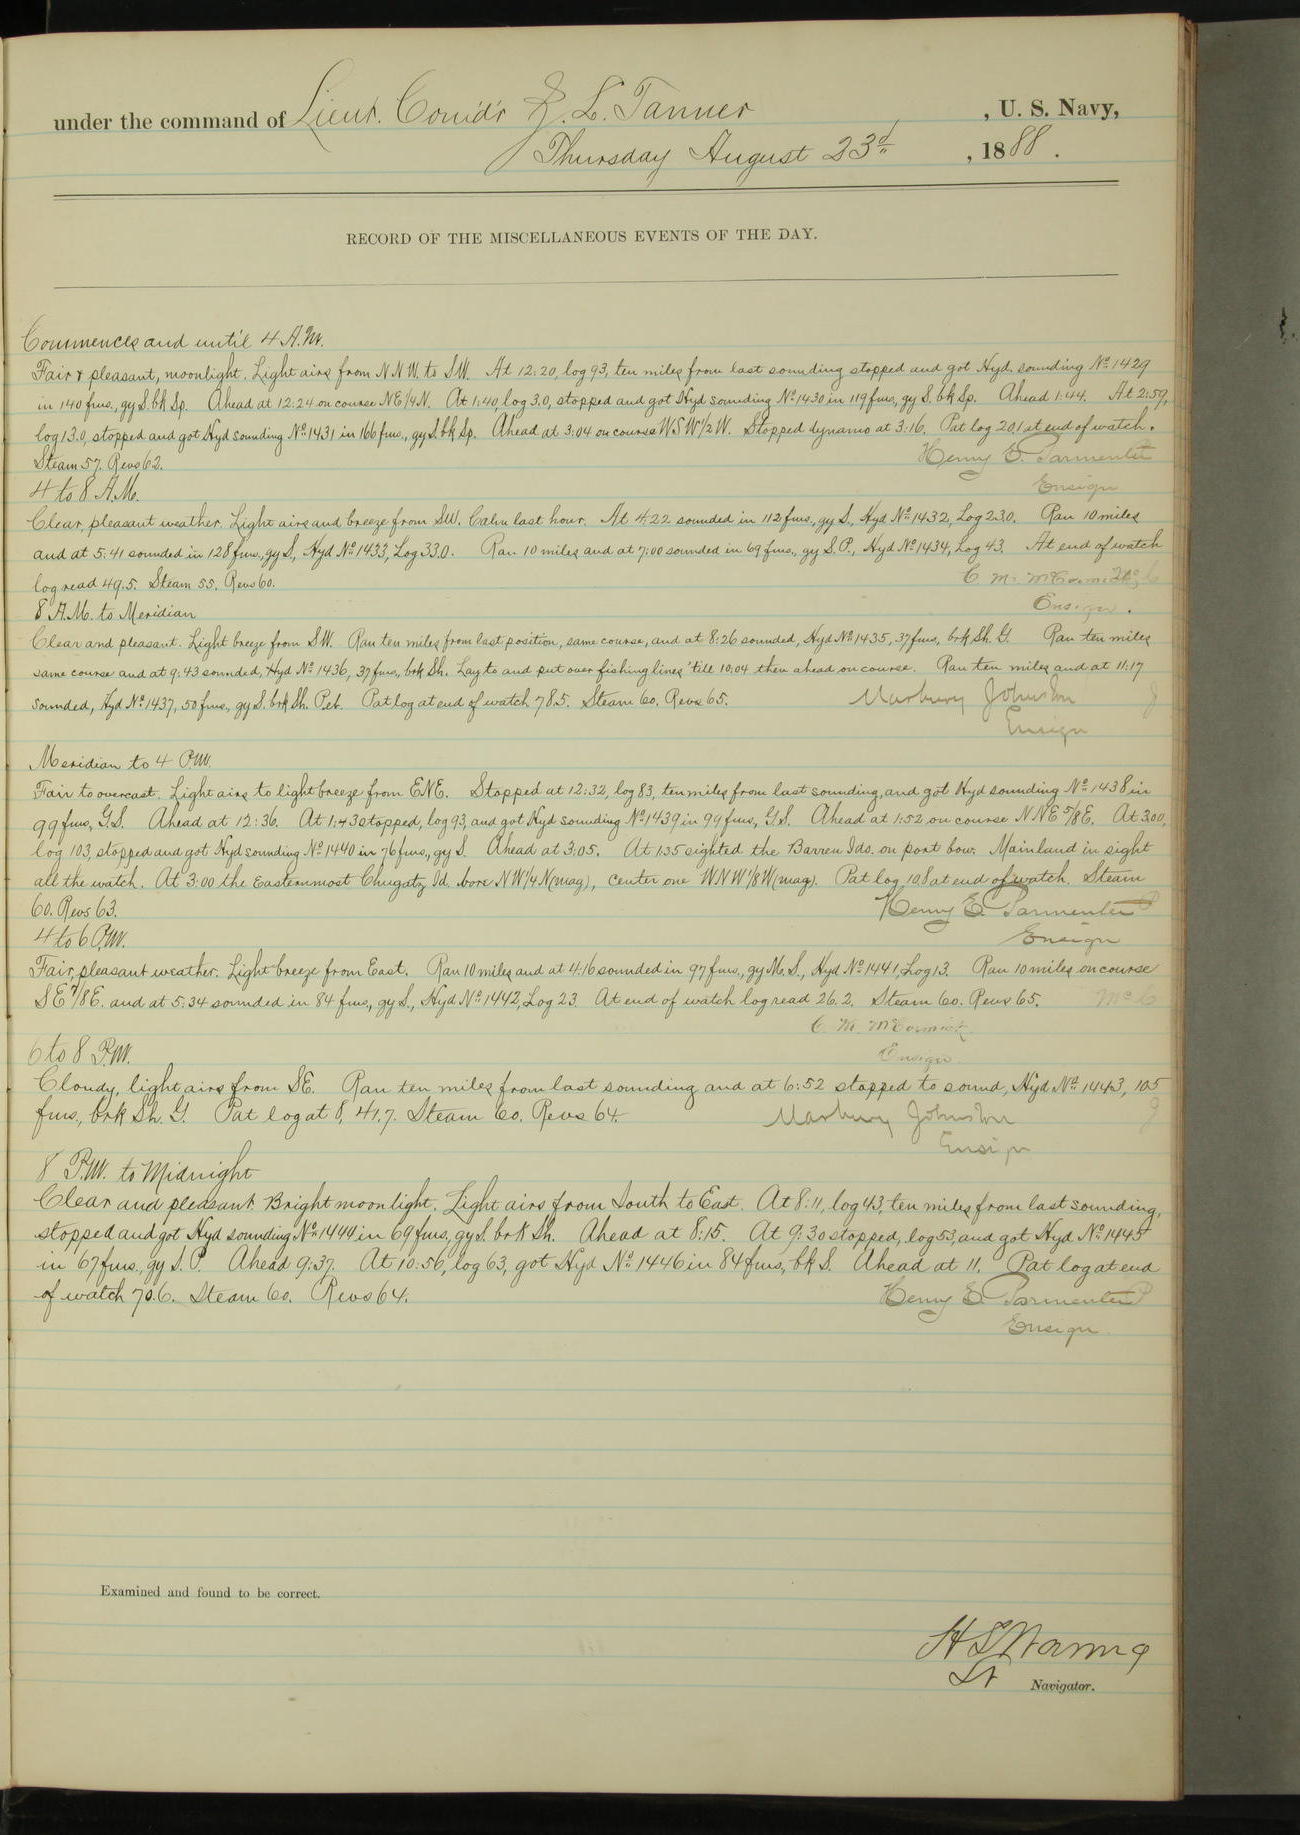 under the command of Lieut. Comd'r Z. L. Tanner, U. S. Navy,
Thursday August 23d, 1888.
RECORD OF THE MISCELLANEOUS EVENTS OF THE DAY.
Commences and until 4 A.M.
Fair & pleasant, moonlight. Light airs from NNW. to SW. At 12:20, log 93, ten miles from last sounding stopped and got Hyd. sounding No 1429
in 140 fms., gy S. bk Sp. Ahead at 12:24 on course NE 1/4 N. At 1:40, log 3.0, stopped and got Hyd sounding No 1430 in 119 fms., gy S. bk Sp. Ahead 1:44. At 2:59,
log 13.0, stopped and got Hyd sounding No 1431 in 166 fms., gy S. bk Sp. Ahead at 3:04 on course WSW 1/2 W. Stopped dynamo at 3:16. Pat log 20.1 at end of watch.
Steam 57. Revs 62. Henry E. Parmenter
Ensign
4 to 8 A.M.
Clear, pleasant weather. Light airs and breeze from SW. Calm last hour. At 4:22 sounded in 112 fms., gy S., Hyd No 1432, Log 23.0. Ran 10 miles
and at 5:41 sounded in 128 fms., gy S., Hyd No 1433, Log 33.0. Ran 10 miles and at 7:00 sounded in 69 fms., gy S. P., Hyd No 1434, Log 43. At end of watch
log read 49.5. Steam 55. Revs 60. C. M. McCormick
Ensign.
8 A.M. to Meridian
Clear and pleasant. Light breeze from SW. Ran ten miles from last position, same course, and at 8:26 sounded, Hyd No 1435, 37 fms, brk Sh. G. Ran ten miles
same course and at 9:43 sounded, Hyd No 1436, 37 fms, brk Sh. Lay to and put over fishing lines 'till 10:04 then ahead on course. Ran ten miles and at 11:17
sounded, Hyd No 1437, 50 fms., gy S. brk Sh. Peb. Pat log at end of watch 78.5. Steam 60. Revs 65. Marbury Johnston J
Ensign
Meridian to 4 P.M.
Fair to overcast. Light airs to light breeze from ENE. Stopped at 12:32, log 83, ten miles from last sounding, and got Hyd sounding No 1438 in
99 fms, G.S. Ahead at 12:36. At 1:43 stopped, log 93, and got Hyd sounding No 1439 in 99 fms, G S. Ahead at 1:52 on course NNE 5/8 E. At 3:00,
log 103, stopped and got Hyd sounding No 1440 in 76 fms., gy S. Ahead at 3:05. At 1:35 sighted the Barren Ids. on port bow. Mainland in sight
all the watch. At 3:00 the Easternmost Chugatz Id. bore NW 1/4 N (mag), center one WNW 1/8 W (mag). Pat log 10.8 at end of watch. Steam
60. Revs 63. Henry E. Parmenter P
Ensign
4 to 6 P.M.
Fair, pleasant weather. Light breeze from East. Ran 10 miles and at 4:16 sounded in 97 fms., gy M. S., Hyd No 1441, Log 13. Ran 10 miles on course
SE 7/8 E. and at 5:34 sounded in 84 fms., gy S., Hyd No 1442, Log 23. At end of watch log read 26.2. Steam 60. Revs 65. McC
C. M. McCormick
Ensign.
6 to 8 P.M.
Cloudy, light airs from SE. Ran ten miles from last sounding and at 6:52 stopped to sound, Hyd No 1443, 105
fms., brk Sh. G. Pat log at 8, 41.7. Steam 60. Revs 64. Marbury Johnston J
Ensign
8 P.M. to Midnight
Clear and pleasant. Bright moonlight. Light airs from South to East. At 8:11, log 43, ten miles from last sounding,
stopped and got Hyd sounding No 1444 in 69 fms, gy S. brk Sh. Ahead at 8:15. At 9:30 stopped, log 53, and got Hyd No 1445
in 67 fms., gy S. P. Ahead 9:37. At 10:56, log 63, got Hyd No 1446 in 84 fms, bk S. Ahead at 11. Pat log at end
of watch 70.6. Steam 60. Revs 64. Henry E. Parmenter P
Ensign.
Examined and found to be correct.
H S Waring
Lt Navigator.